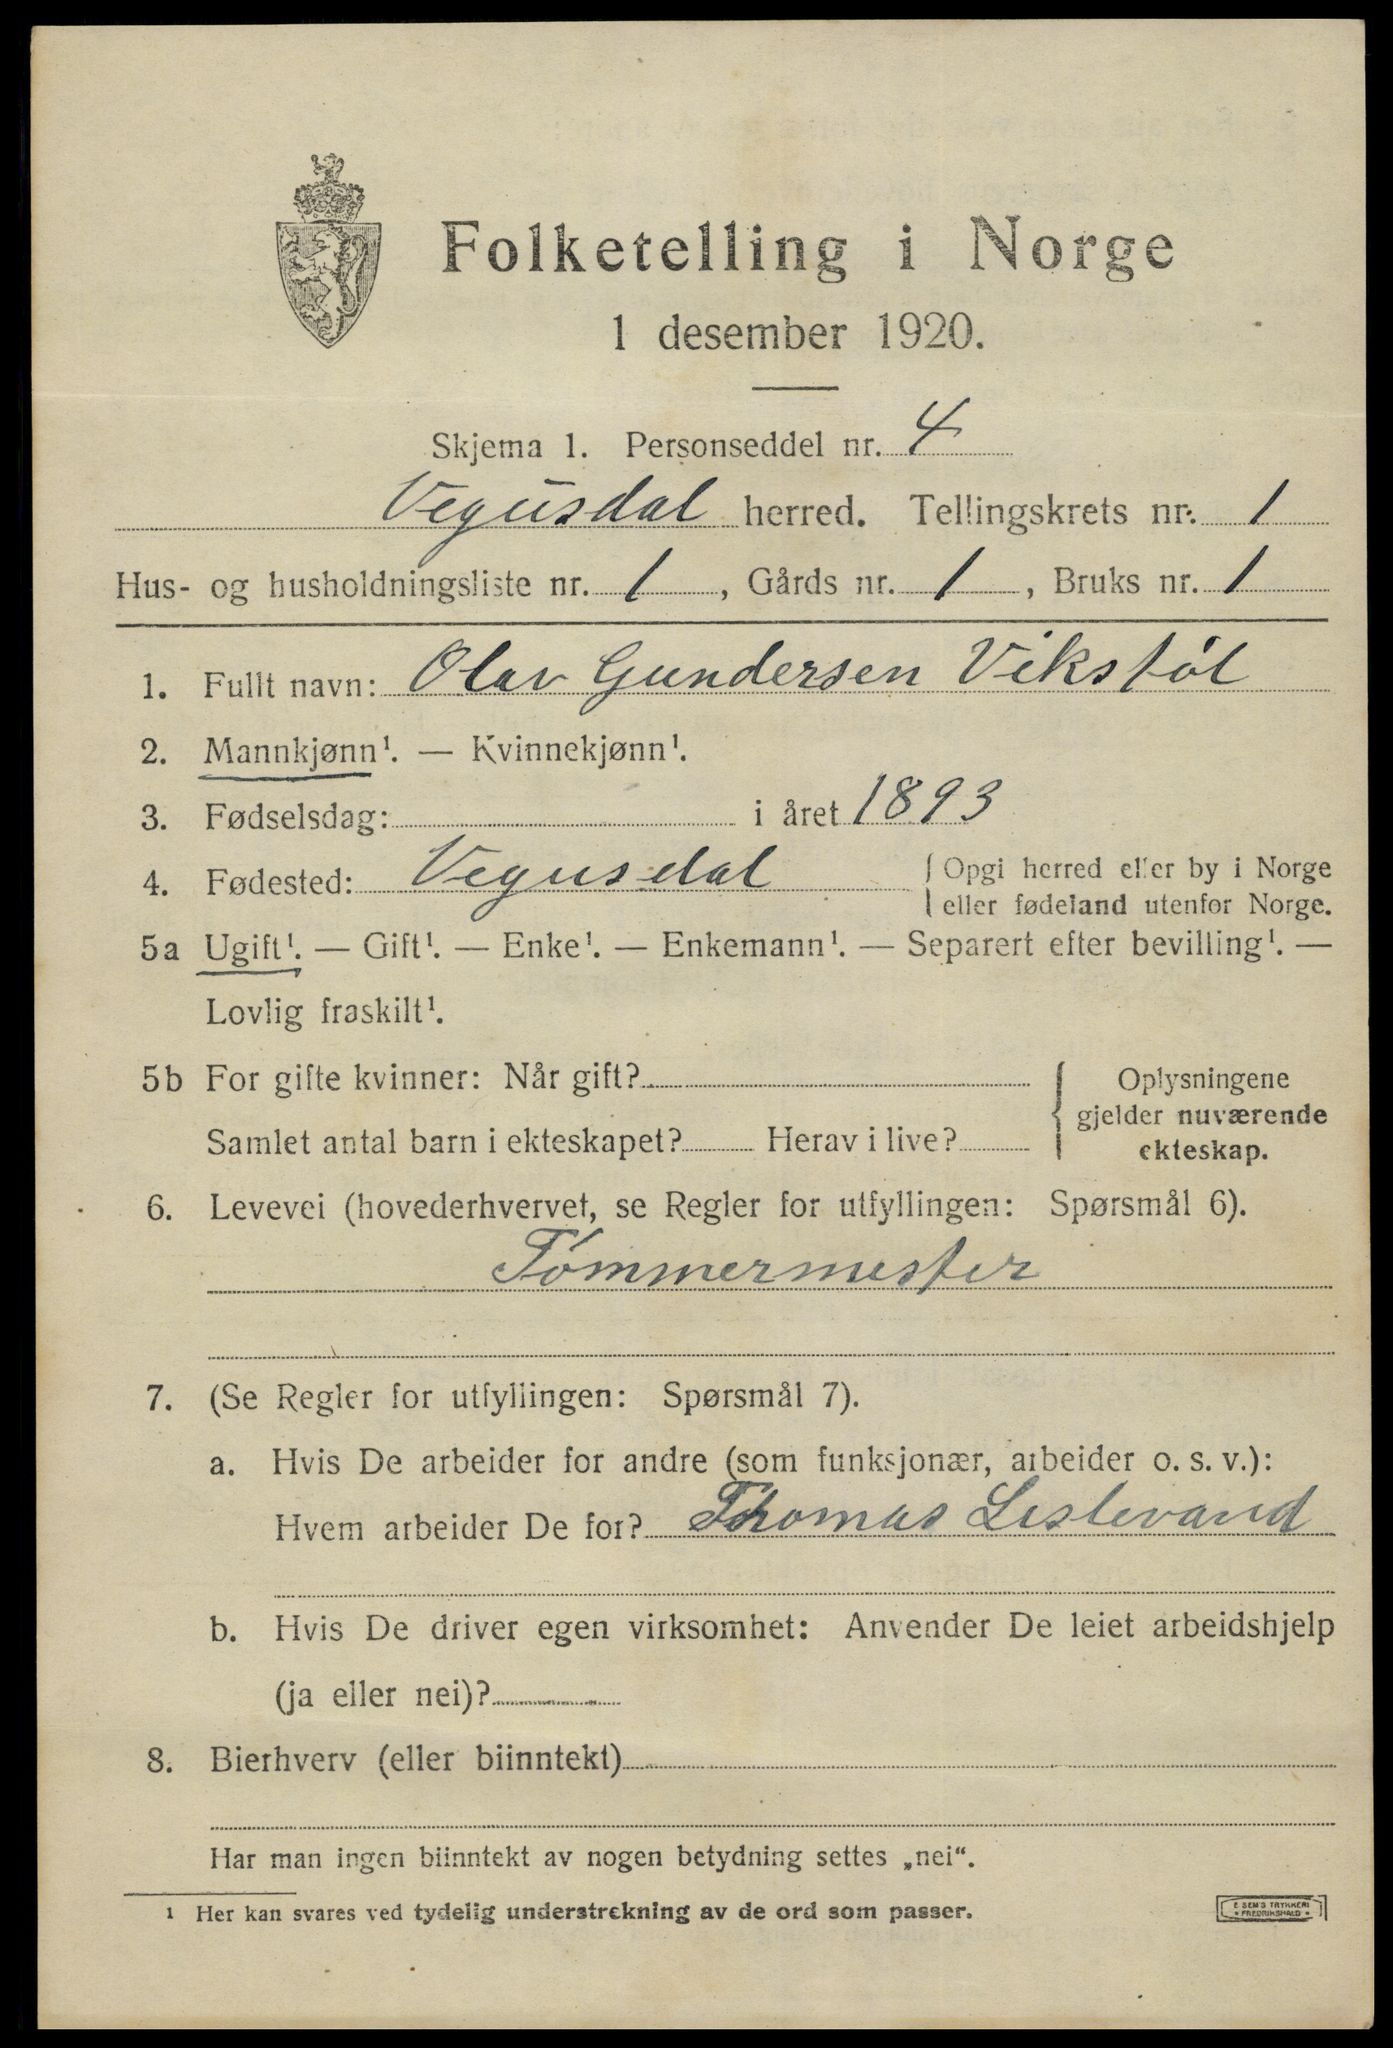 Folketelling i Norge
1 desember 1920.
Skjema 1. Personseddel nr. 4
Vegusdal herred. Tellingskrets nr. 1
Hus- og husholdningsliste nr. 1, Gårds nr. 1, Bruks nr. 1
1. Fullt navn: Olav Gundersen Vikstøl
2. Mannkjønn¹. — Kvinnekjønn¹.
3. Fødselsdag: i året 1893
4. Fødested: Vegusdal { Opgi herred eller by i Norge
eller fødeland utenfor Norge.
5a Ugift¹. — Gift¹. — Enke¹. — Enkemann¹. — Separert efter bevilling¹. —
Lovlig fraskilt¹.
5b For gifte kvinner: Når gift?
Samlet antal barn i ekteskapet? Herav i live?
{ Oplysningene
gjelder nuværende
ekteskap.
6. Levevei (hovederhvervet, se Regler for utfyllingen: Spørsmål 6).
Tømmermester
7. (Se Regler for utfyllingen: Spørsmål 7).
a. Hvis De arbeider for andre (som funksjonær, arbeider o. s. v.):
Hvem arbeider De for? Thomas Lislevand
b. Hvis De driver egen virksomhet: Anvender De leiet arbeidshjelp
(ja eller nei)?
8. Bierhverv (eller biinntekt)
Har man ingen biinntekt av nogen betydning settes „nei“.
¹ Her kan svares ved tydelig understrekning av de ord som passer.
E SEM'S TRYKKERI
* FREDRIKSHALD *